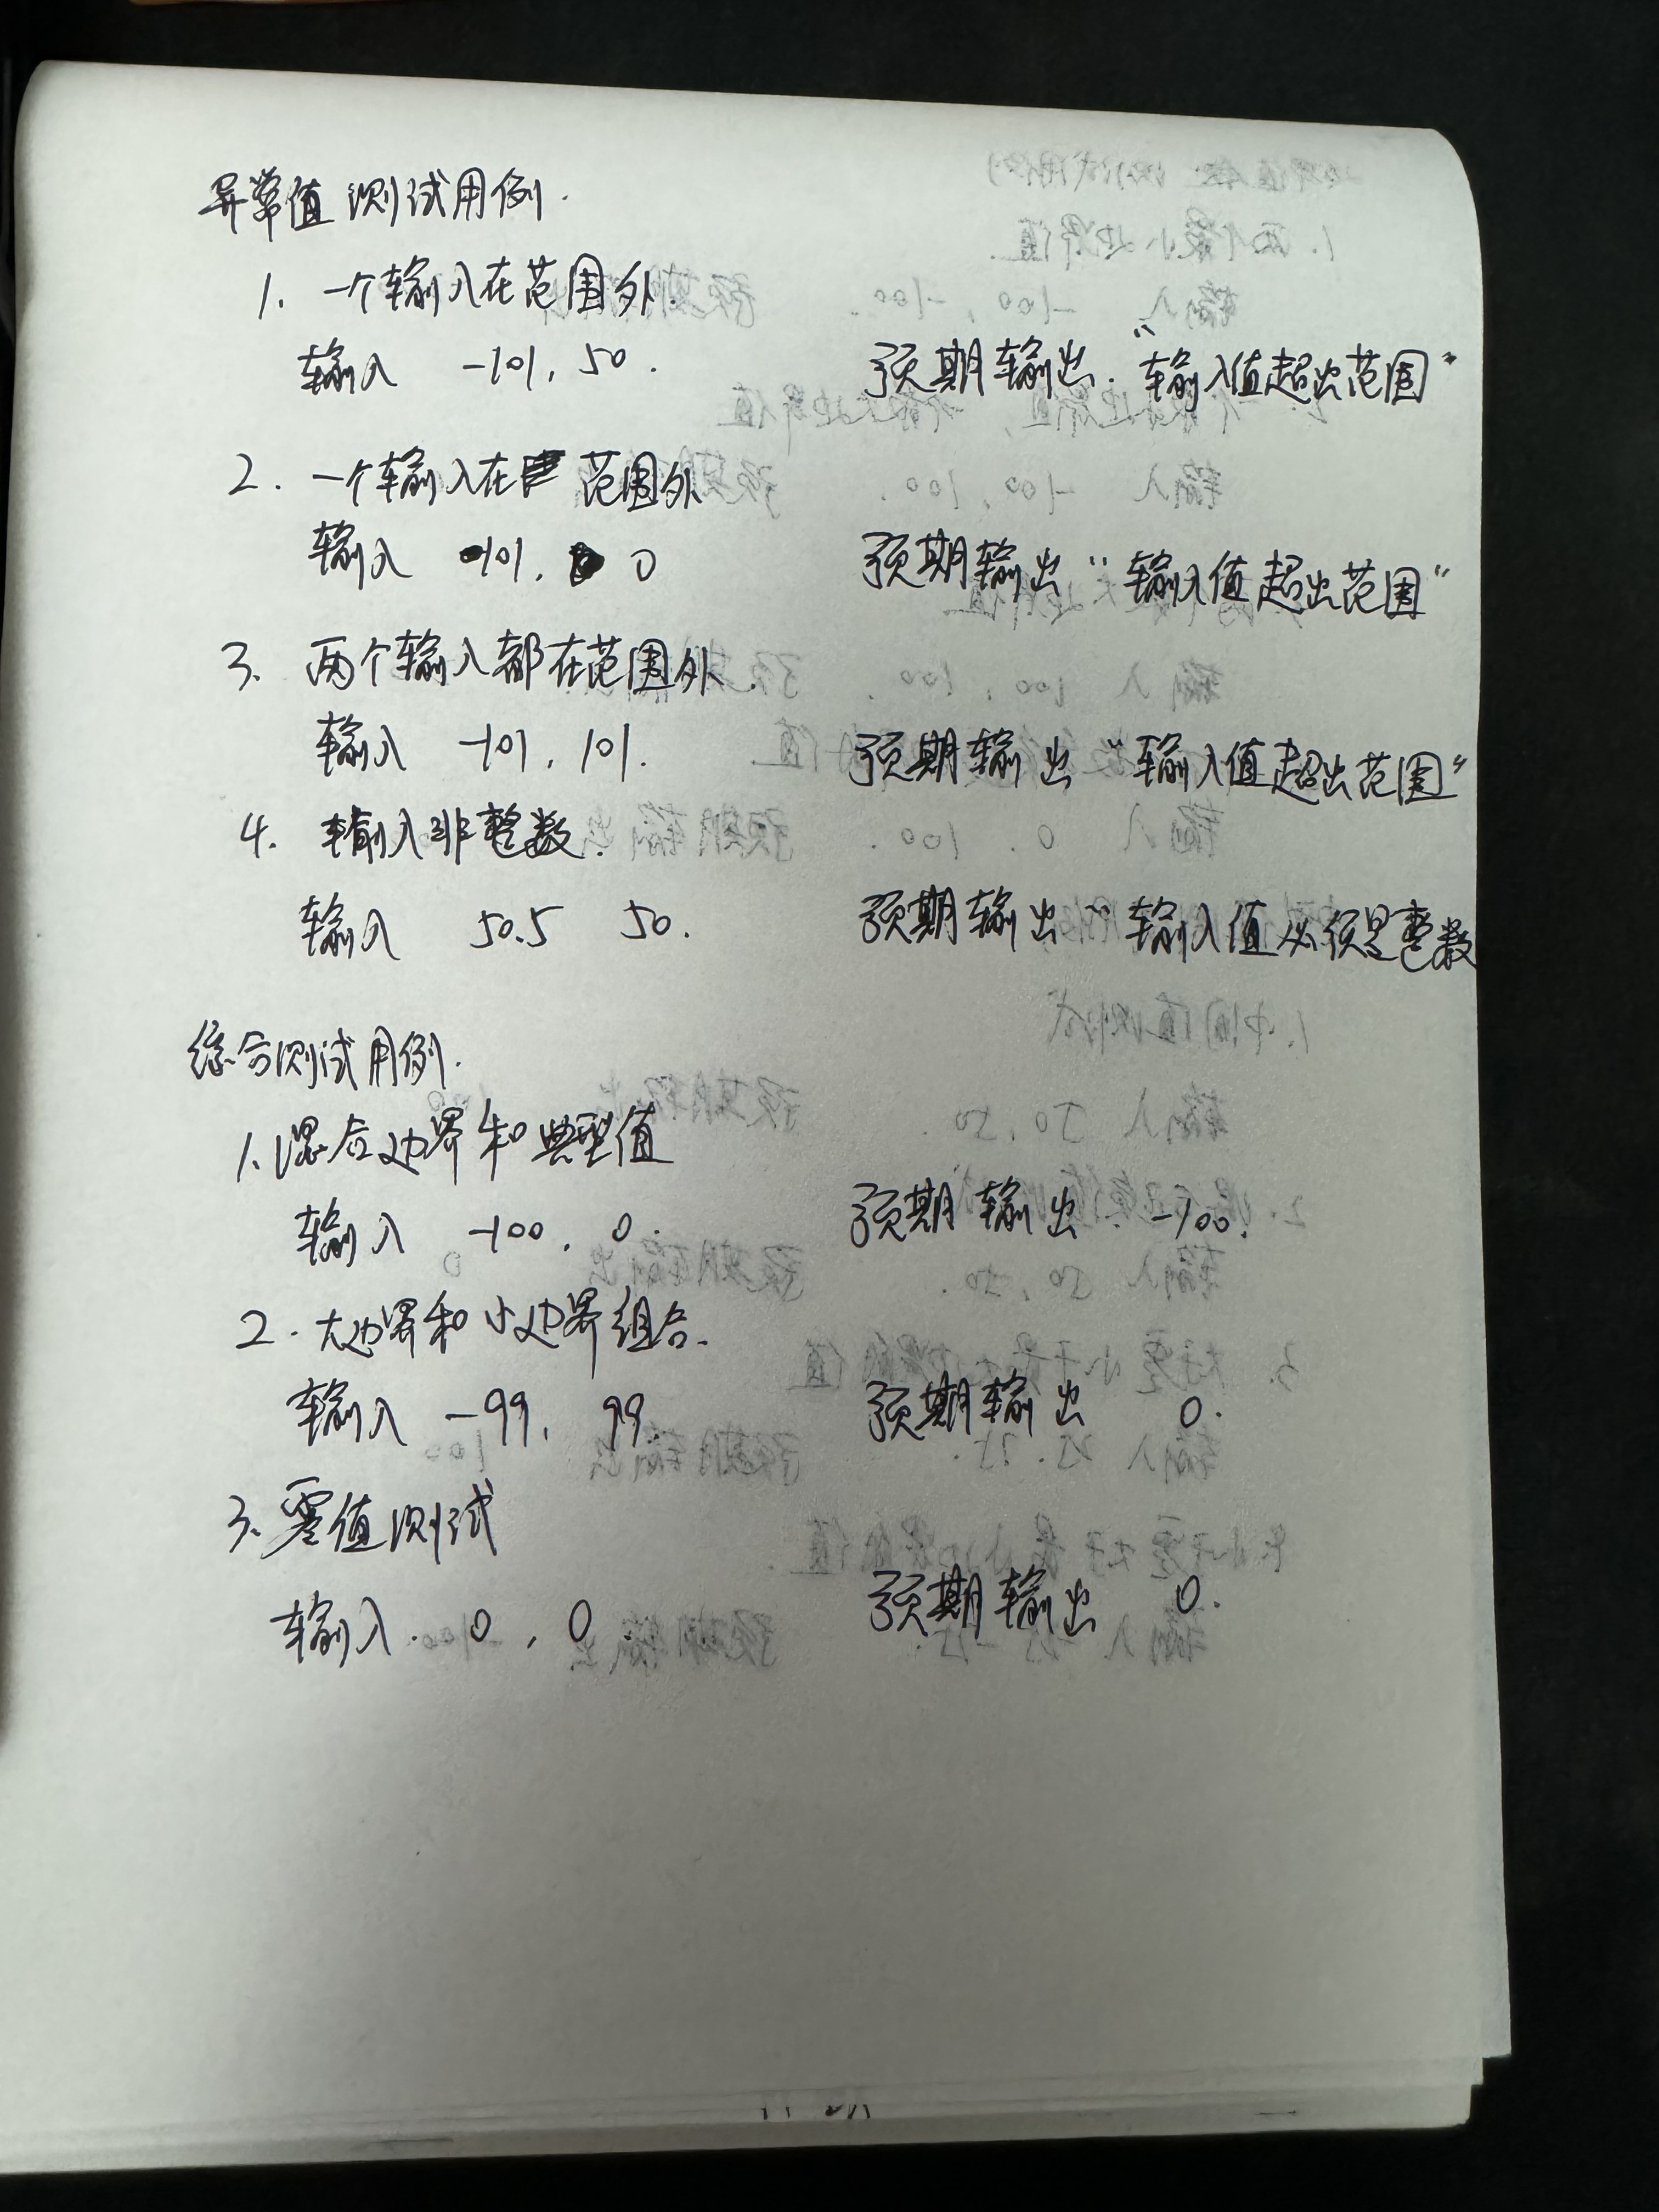 异常值测试用例.
1. 一个输入在范围外.
输入 -101, 50. 预期输出. "输入值超出范围"
2. 一个输入在范围外
输入 101, 0 预期输出 "输入值超出范围"
3. 两个输入都在范围外.
输入 -101, 101. 预期输出 "输入值超出范围"
4. 输入非整数.
输入 50.5 50. 预期输出 "输入值必须是整数
综合测试用例.
1. 混合边界和典型值
输入 -100, 0. 预期输出 -100.
2. 大边界和小边界组合.
输入 -99, 99. 预期输出 0.
3. 零值测试
输入. 0, 0. 预期输出 0.